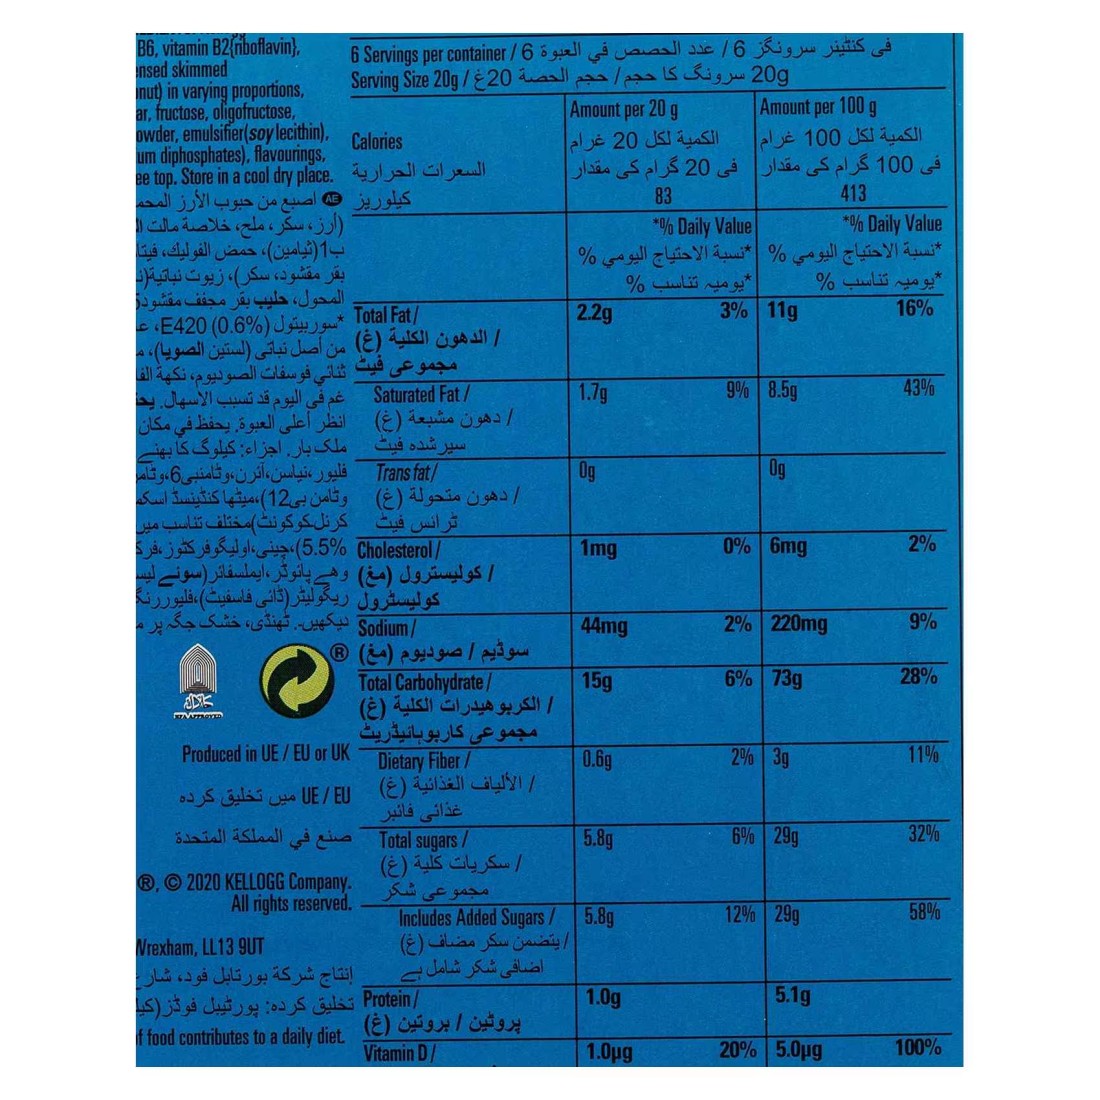 B6, vitamin B2(riboflavin),
skimmed
in varying proportions,
fructose, oligofructose,
emulsifier(soy lecithin),
diphosphates), flavourings,
top. Store in a cool dry place.
AE اصبع من حبوب الأرز
(أرز، سكر، ملح، خلاصة مالت
ب1(ثيامين)، حمض الفوليك،
بقر مقشود، سكر)، زيوت نباتية
المحول، حليب بقر مجفف مقشود
*سوربيتول E420 (0.6%)،
من أصل نباتي (لستين الصويا)،
ثنائي فوسفات الصوديوم، نكهة
غم في اليوم قد تسبب الاسهال.
انظر أعلى العبوة. يحفظ في مكان
ملک بار. اجزاء: کیلوگ کا بھنے
فلیور،نیاسن،آئرن،وٹامنبی6،
وٹامن بی12)،میٹھا کنڈینسڈ
کرنل،کوکونٹ)مختلف تناسب میں
5.5%)،چینی،اولیگوفرکٹوز،
وھے پائوڈر،ایملسفائر(سوئے
ریگولیٹر(ڈائی فاسفیٹ)،
دیکھیں۔. ٹھنڈی، خشک جگہ پر
®
Produced in UE / EU or UK
UE / EU میں تخلیق کردہ
صنع في المملكة المتحدة
®, © 2020 KELLOGG Company.
All rights reserved.
Wrexham, LL13 9UT
إنتاج شركة بورتابل فود،
تخلیق کردہ: پورٹیبل فوڈز
of food contributes to a daily diet.
6 Servings per container / 6 عدد الحصص في العبوة / 6 فی کنٹینر سرونگز
Serving Size 20g / حجم الحصة 20غ / سرونگ کا حجم 20g
Calories
السعرات الحرارية
کیلوریز
Amount per 20 g
الكمية لكل 20 غرام
فی 20 گرام کی مقدار
83
Amount per 100 g
الكمية لكل 100 غرام
فی 100 گرام کی مقدار
413
*% Daily Value *% Daily Value
*نسبة الاحتياج اليومي % *نسبة الاحتياج اليومي %
*یومیہ تناسب % *یومیہ تناسب %
Total Fat / 2.2g 3% 11g 16%
الدهون الكلية (غ) /
مجموعی فیٹ
Saturated Fat / 1.7g 9% 8.5g 43%
دهون مشبعة (غ) /
سیرشدہ فیٹ
Trans fat / 0g 0g
دهون متحولة (غ) /
ٹرانس فیٹ
Cholesterol / 1mg 0% 6mg 2%
كوليسترول (مغ) /
کولیسٹرول
Sodium / 44mg 2% 220mg 9%
سوڈیم / صوديوم (مغ)
Total Carbohydrate / 15g 6% 73g 28%
الكربوهيدرات الكلية (غ) /
مجموعی کاربوہائیڈریٹ
Dietary Fiber / 0.6g 2% 3g 11%
الألياف الغذائية (غ) /
غذائی فائبر
Total sugars / 5.8g 6% 29g 32%
سكريات كلية (غ) /
مجموعی شکر
Includes Added Sugars / 5.8g 12% 29g 58%
يتضمن سكر مضاف (غ) /
اضافی شکر شامل ہے
Protein / 1.0g 5.1g
پروٹین / بروتين (غ)
Vitamin D / 1.0µg 20% 5.0µg 100%